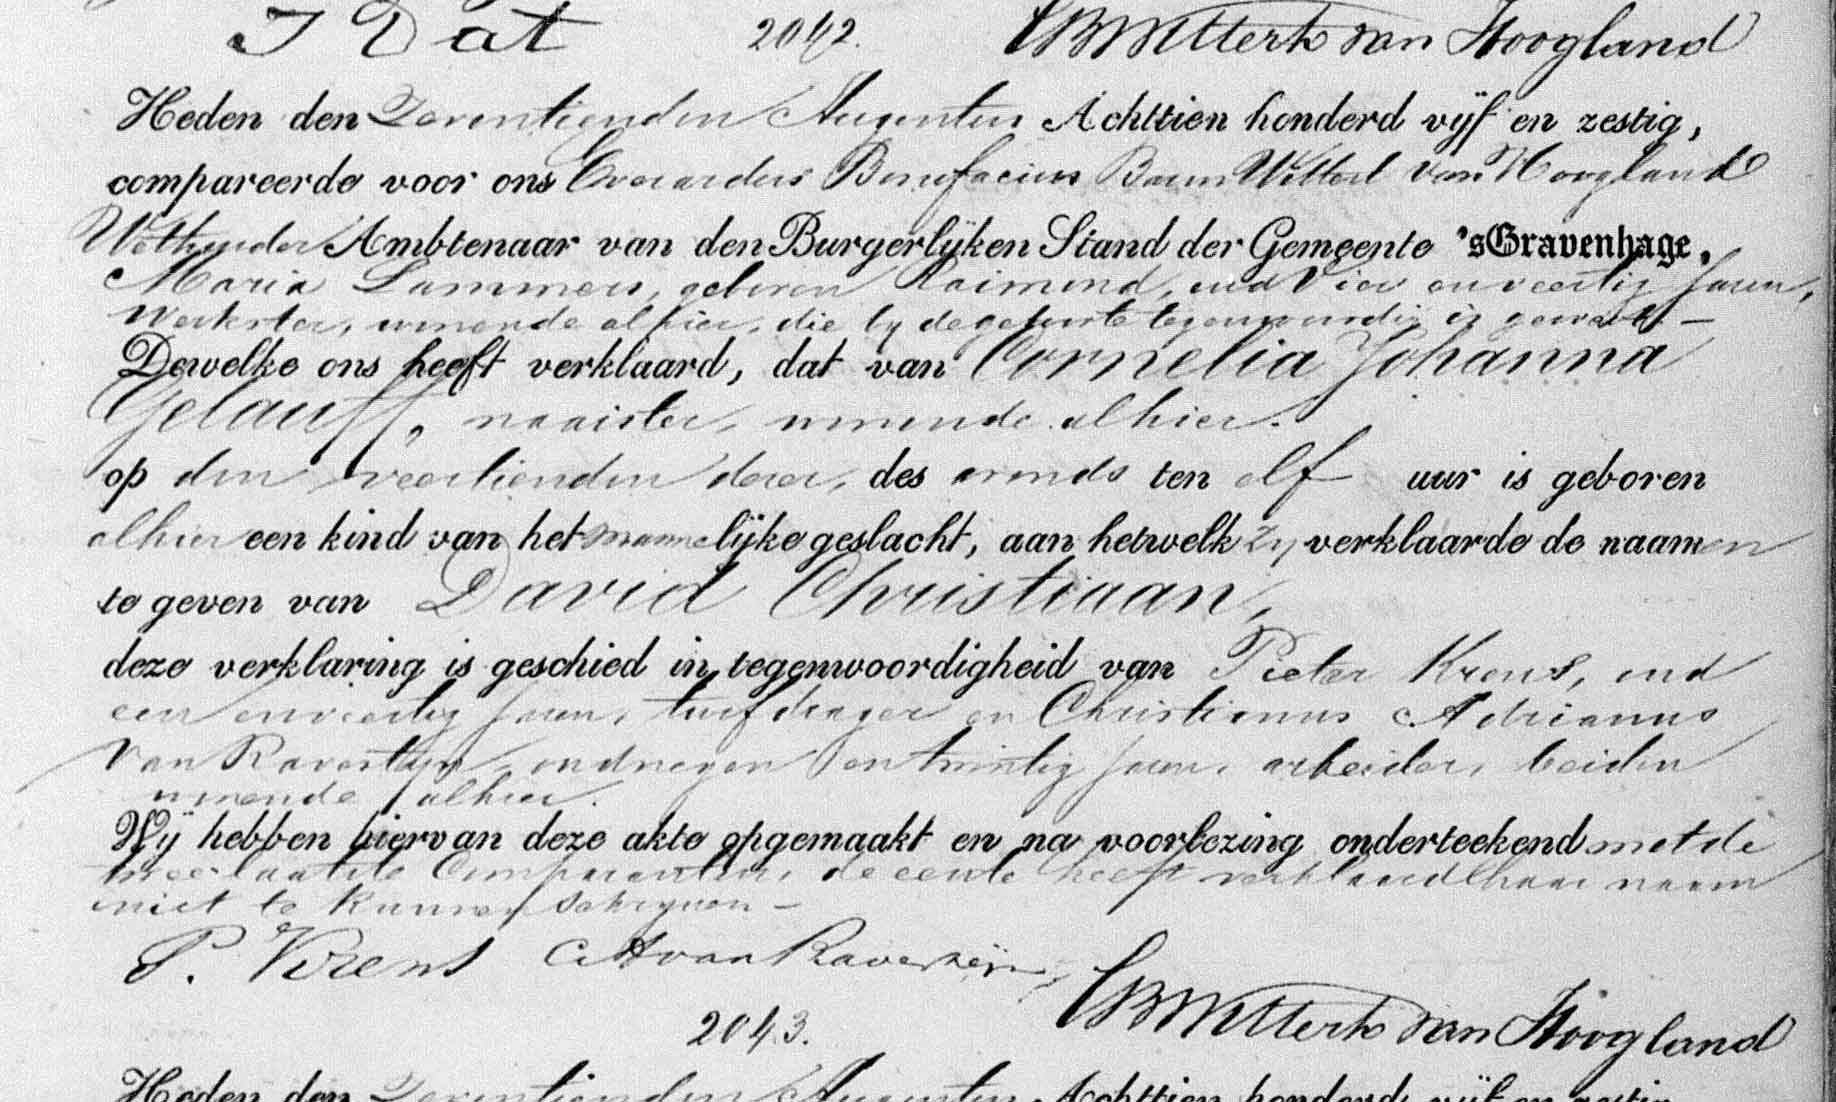 J Dat 2042. EBWittert van Hoogland
Heden den Zeventienden Augustus Achttien honderd vijf en zestig,
compareerde voor ons Everardus Bonefacius Baron Wittert van Hoogland
Wethouder Ambtenaar van den Burgerlijken Stand der Gemeente 'sGravenhage,
Maria Lammers, geboren Raimond, oud Vier en veertig Jaren,
Werkster, wonende alhier, die by de geboorte tegenwoordig is geweest. —
Dewelke ons heeft verklaard, dat van Cornelia Johanna
Gelauff, naaister, wonende alhier.
op den veertienden dezer, des avonds ten elf uur is geboren
alhier een kind van het mannelijke geslacht, aan hetwelk zy verklaarde de naamen
te geven van David Christiaan,
deze verklaring is geschied in tegenwoordigheid van Pieter Krens, oud
een en veertig Jaren, turfdrager en Christianus Adrianus
van Ravesteijn, oud negen en twintig Jaren, arbeider, beiden
wonende alhier.
Wij hebben hiervan deze akte opgemaakt en na voorlezing onderteekend met de
twee laatste Comparanten, de eerste heeft verklaard haar naam
niet te kunnen schryven —
P. Krens CAvan Ravesteijn EBWittert van Hoogland
2043.
Heden den Zeventienden Augustus Achttien honderd vijf en zestig